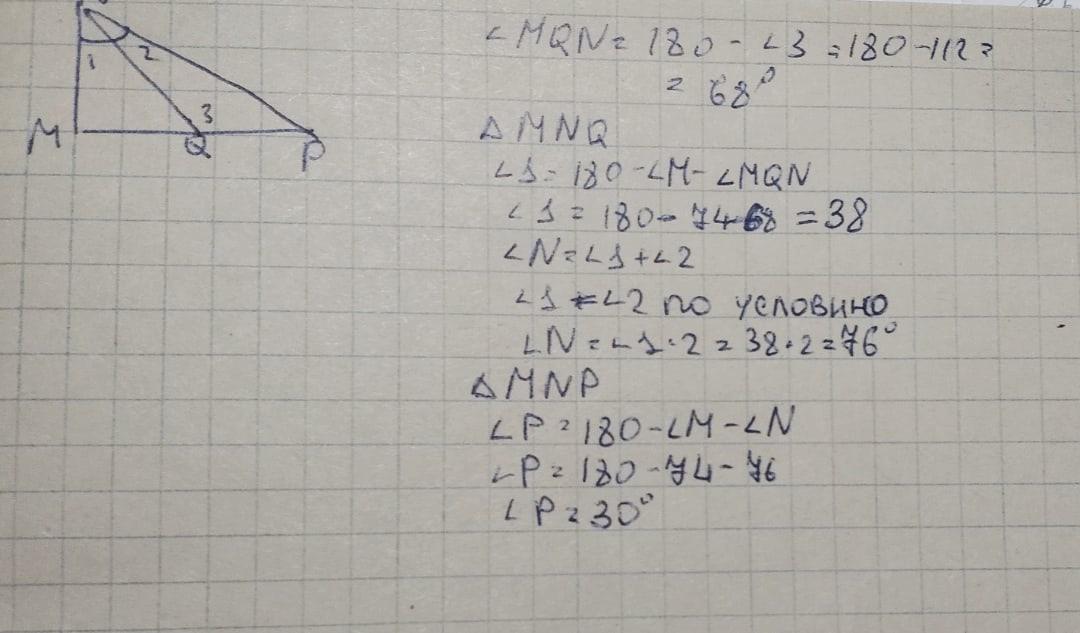 ∠MQN = 180 - ∠3 = 180 - 112 =
= 68°
△MNQ
∠1 = 180 - ∠M - ∠MQN
∠1 = 180 - 74 - 68 = 38
∠N = ∠1 + ∠2
∠1 = ∠2 по условино
∠N = ∠1 · 2 = 38 · 2 = 76°
△MNP
∠P = 180 - ∠M - ∠N
∠P = 180 - 74 - 76
∠P = 30°
1 2
3
M Q P